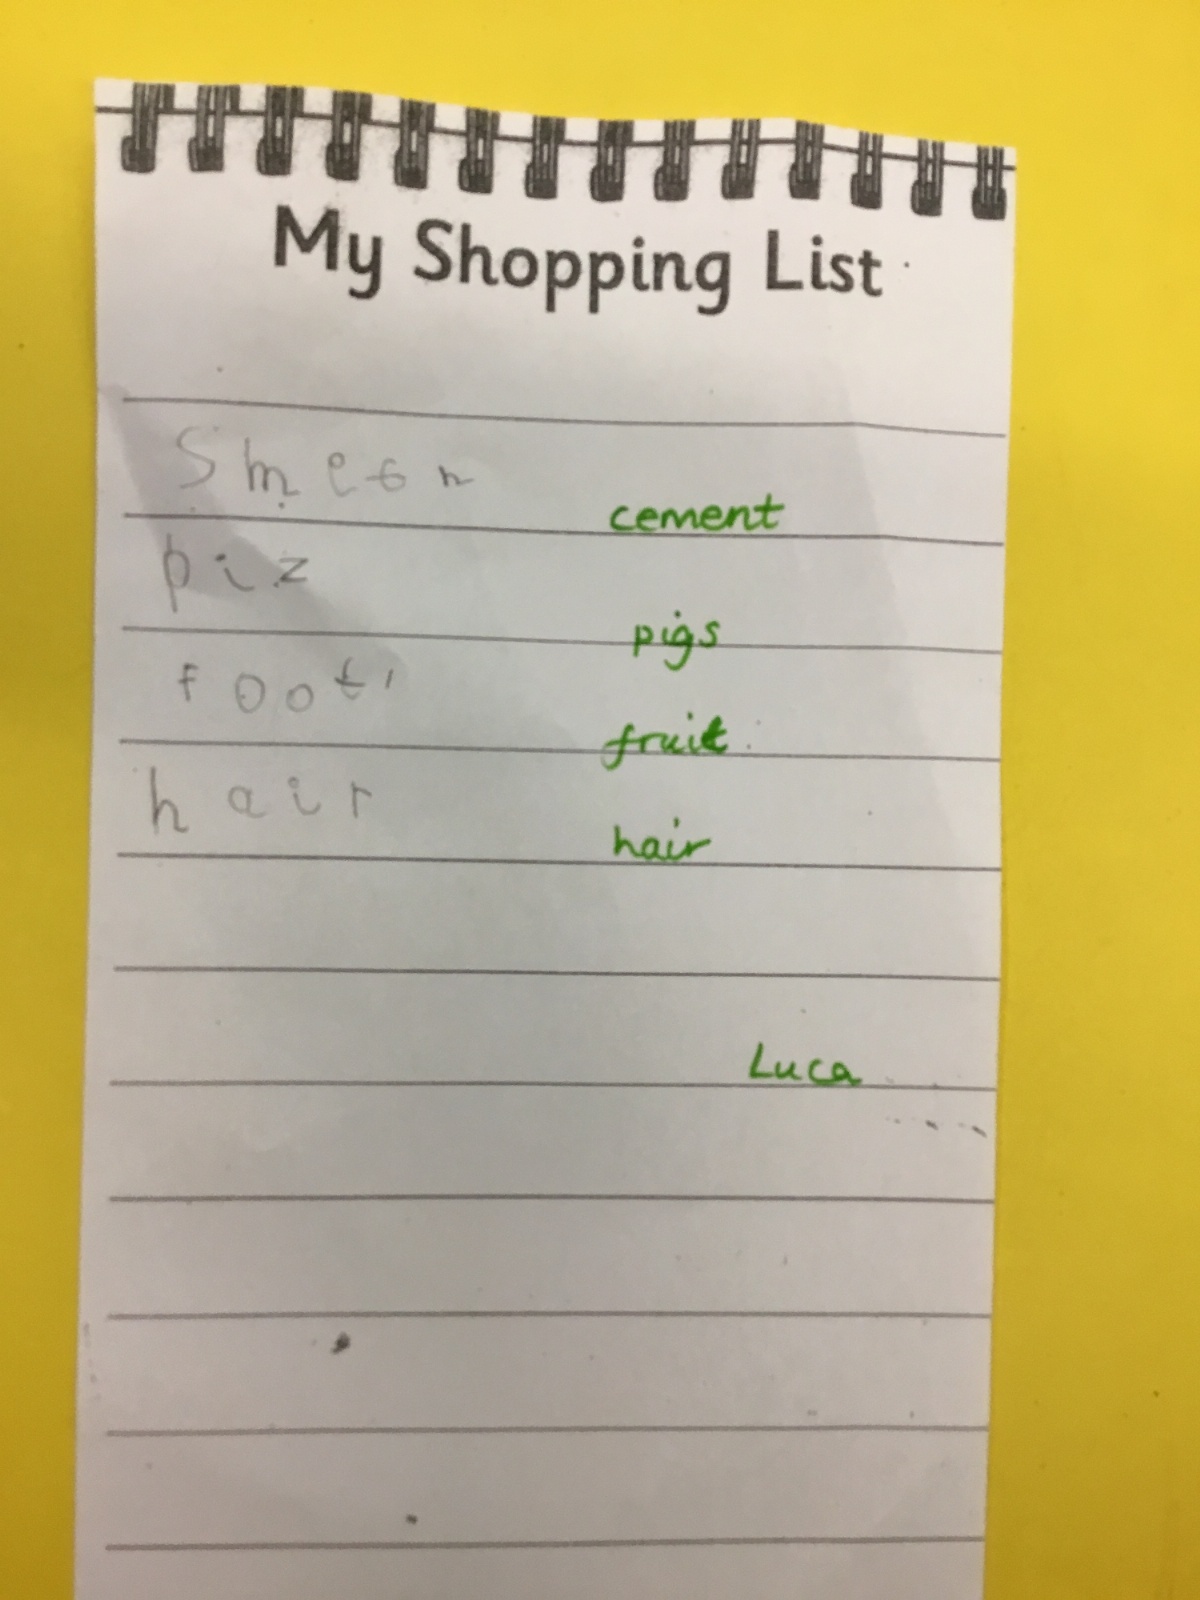 My Shopping List
Smeon
cement
piz
pigs
foot
fruit
hair
hair
Luca